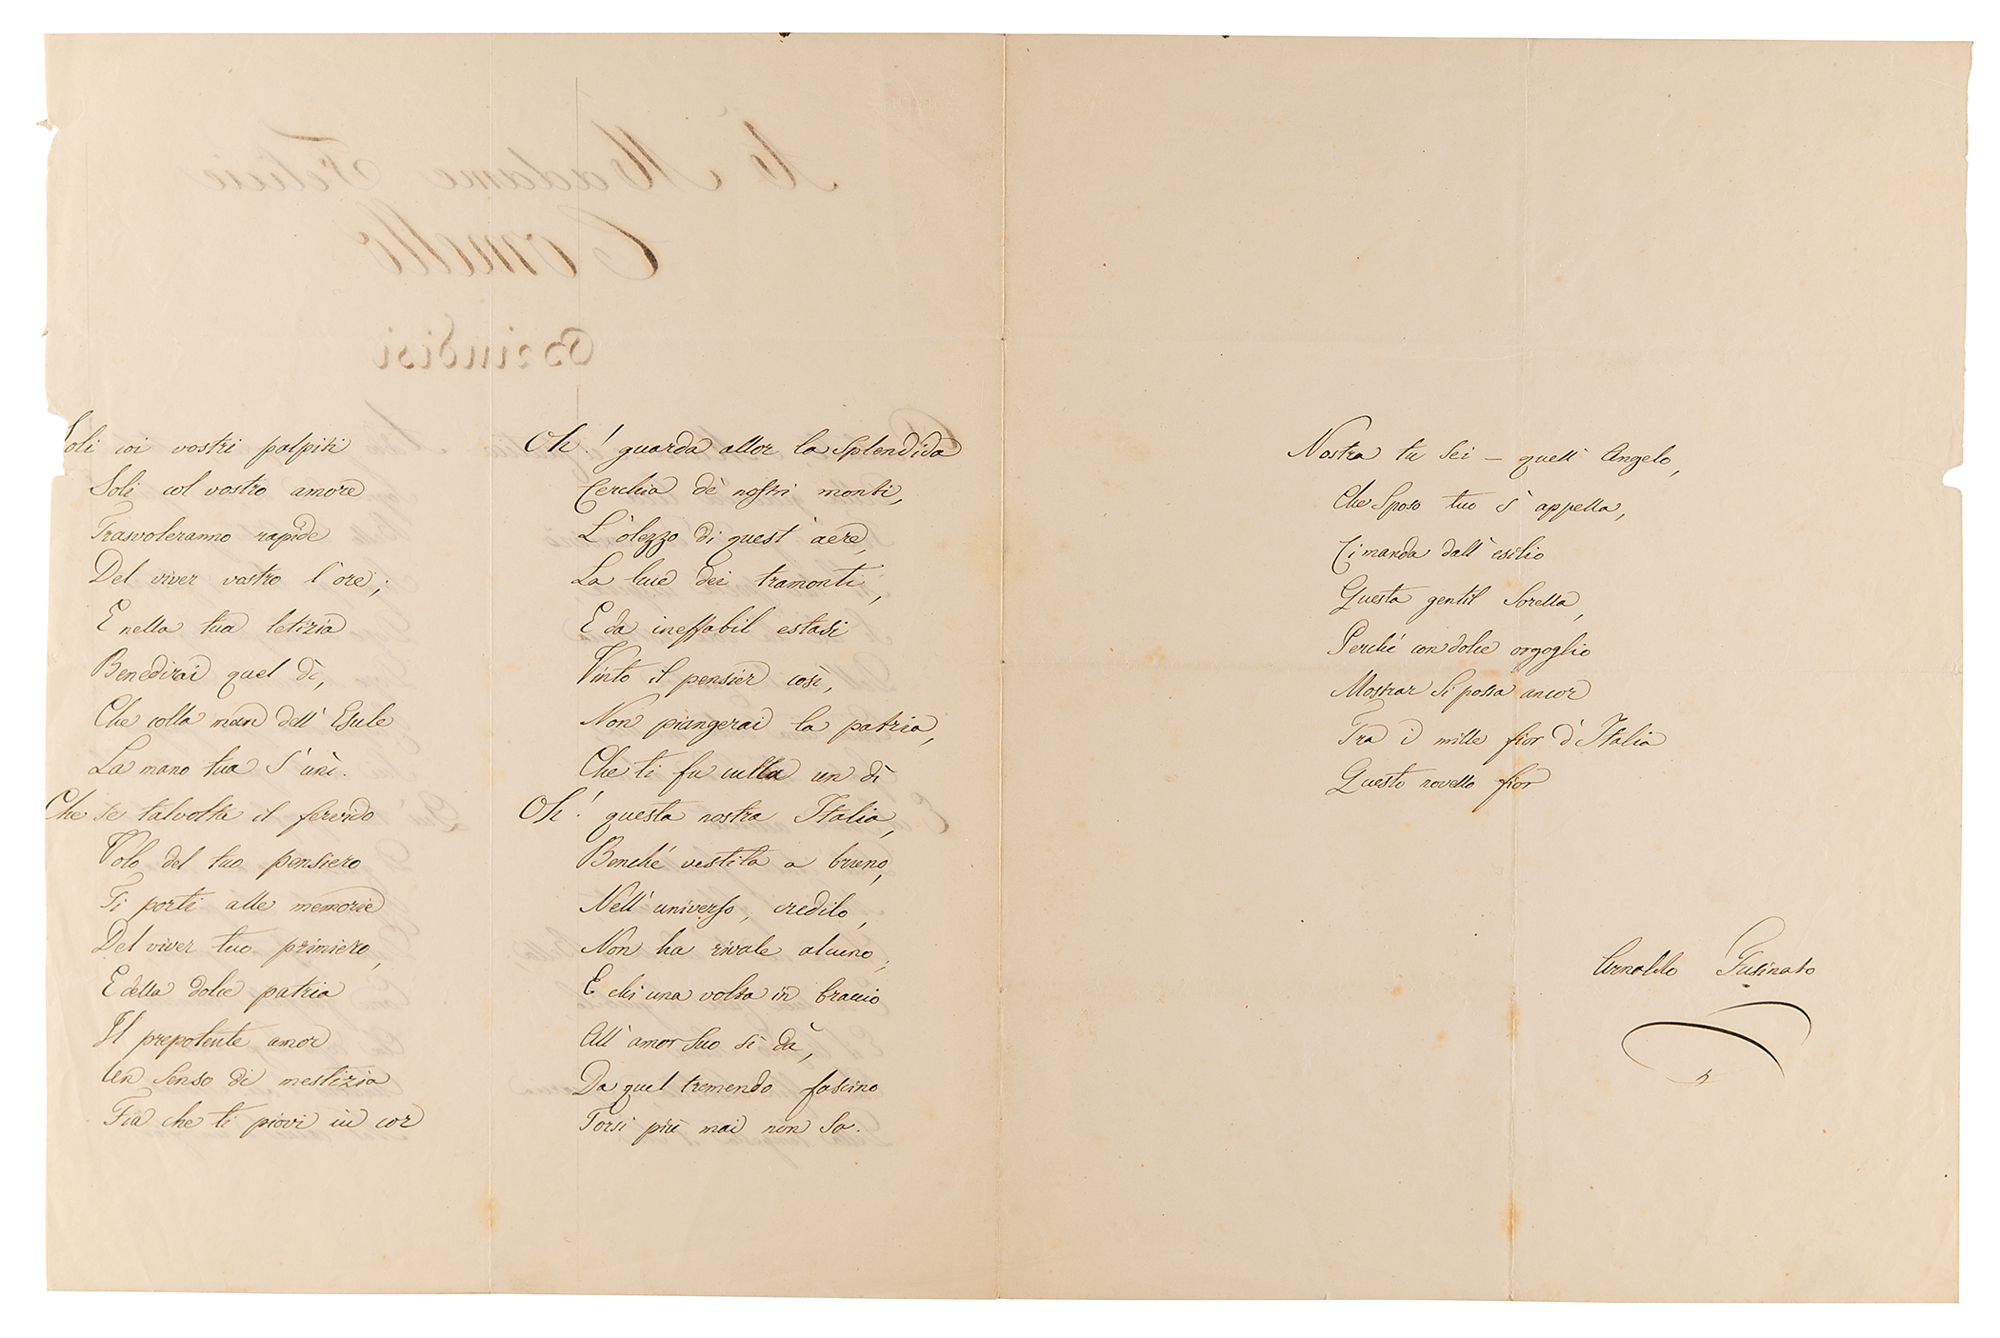 Soli coi vostri palpiti
Soli col vostro amore
Trasvoleranno rapide
Del viver vostro l'ore;
E nella tua letizia
Benedirai quel dì,
Che colla man dell' Esule
La mano tua s' unì.
Che se talvolta il fervido
Volo del tuo pensiero
Ti porti alle memorie
Del viver tuo primiero,
E della dolce patria
Il prepotente amor
Un senso di mestizia
Fia che ti piovi in cor
Oh! guarda allor la splendida
Cerchia de' nostri monti,
L' olezzo di quest' aere,
La luce dei tramonti,
E da ineffabil estasi
Vinto il pensier così,
Non piangerai la patria,
Che ti fu culla un dì
Oh! questa nostra Italia,
Benché vestita a bruno,
Nell' universo, credilo,
Non ha rivale alcuno;
E chi una volta in braccio
All' amor suo si dà,
Da quel tremendo fascino
Torsi più mai non sa.
Nostra tu sei – quell' Angelo,
Che sposo tuo s' appella,
Ci manda dall' esilio
Questa gentil sorella,
Perché con dolce orgoglio
Mostrar si possa ancor
Tra i mille fior d' Italia
Questo novello fior
Arnaldo Fusinato
A Madame Felicie
Comello
Brindisi